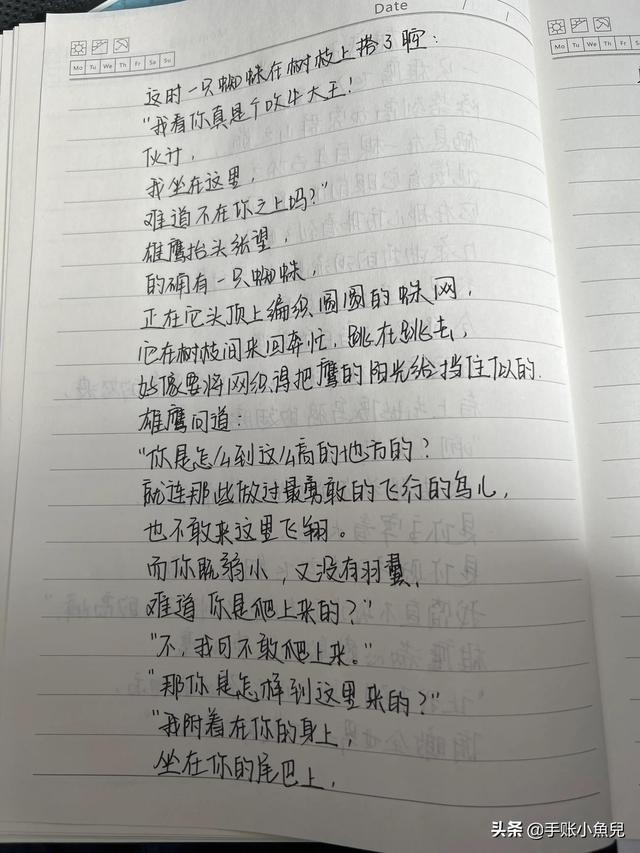 Date / /
Mo Tu We Th Fr Sa Su
这时一只蜘蛛在树枝上搭了腔:
"我看你真是个吹牛大王!
伙计,
我坐在这里,
难道不在你之上吗?"
雄鹰抬头张望,
的确有一只蜘蛛,
正在它头顶上编织圆圆的蛛网,
它在树枝间来回奔忙,跳在跳去,
好像要将网织得把鹰的阳光给挡住似的.
雄鹰问道:
"你是怎么到这么高的地方的?
就连那些做过最勇敢的飞行的鸟儿,
也不敢来这里飞翔。
而你既弱小,又没有羽翼,
难道你是爬上来的?"
"不,我可不敢爬上来。"
"那你是怎样到这里来的?"
"我附着在你的身上,
坐在你的尾巴上,
头条 @手账小魚兒